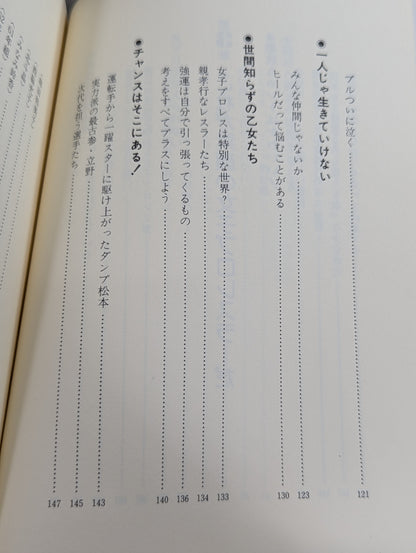 アルついに泣く……121
●一人じゃ生きていけない
みんな仲間じゃないか……123
ヒールだって悩むことがある……130
●世間知らずの乙女たち
女子プロレスは特別な世界？……133
親孝行なレスラーたち……134
強運は自分で引っ張ってくるもの……136
考えをすべてプラスにしよう……140
●チャンスはそこにある！
運転手から一躍スターに駆け上がったダンプ松本……143
実力派の最古参・立野……145
次代を担う選手たち……147